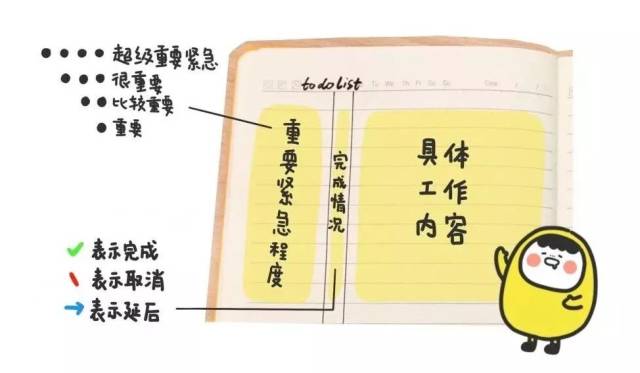 ●●●● 超级重要紧急
●●● 很重要
●● 比较重要
● 重要
to do list
Tu We Th Fr Sa Su
Date / /
重要紧急程度
完成情况
具体
工作
内容
✓ 表示完成
\ 表示取消
→ 表示延后